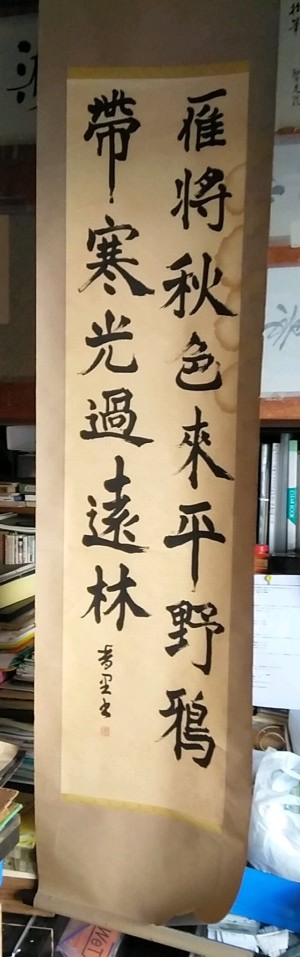 雁將秋色來平野鴉
帶寒光過遠林